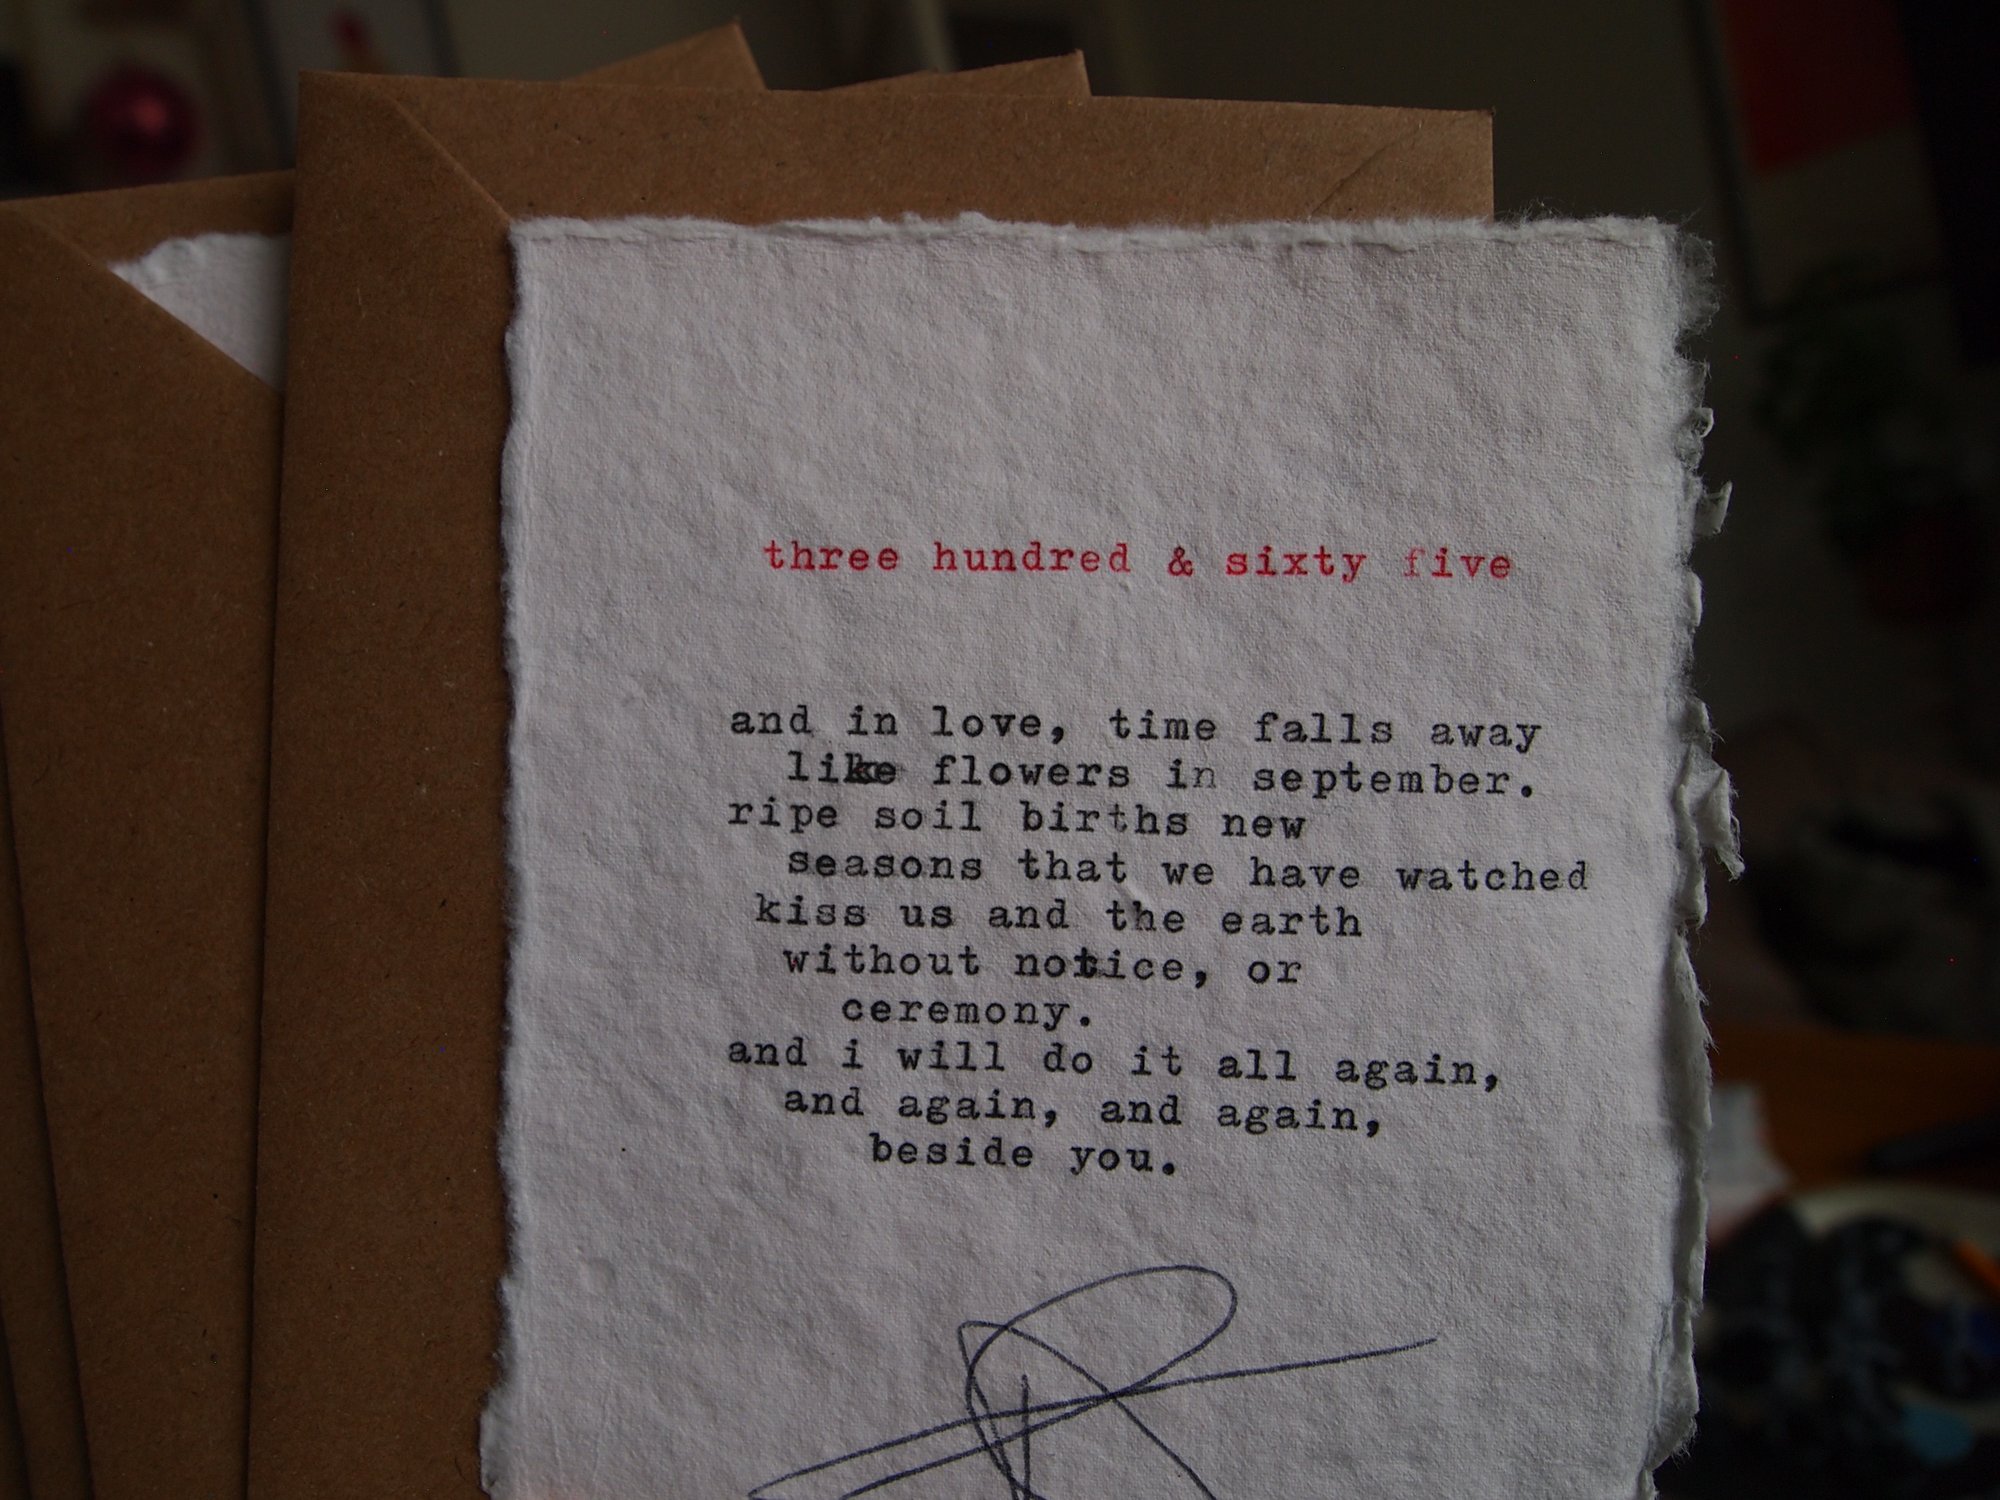 three hundred & sixty five
and in love, time falls away
like flowers in september.
ripe soil births new
seasons that we have watched
kiss us and the earth
without notice, or
ceremony.
and i will do it all again,
and again, and again,
beside you.